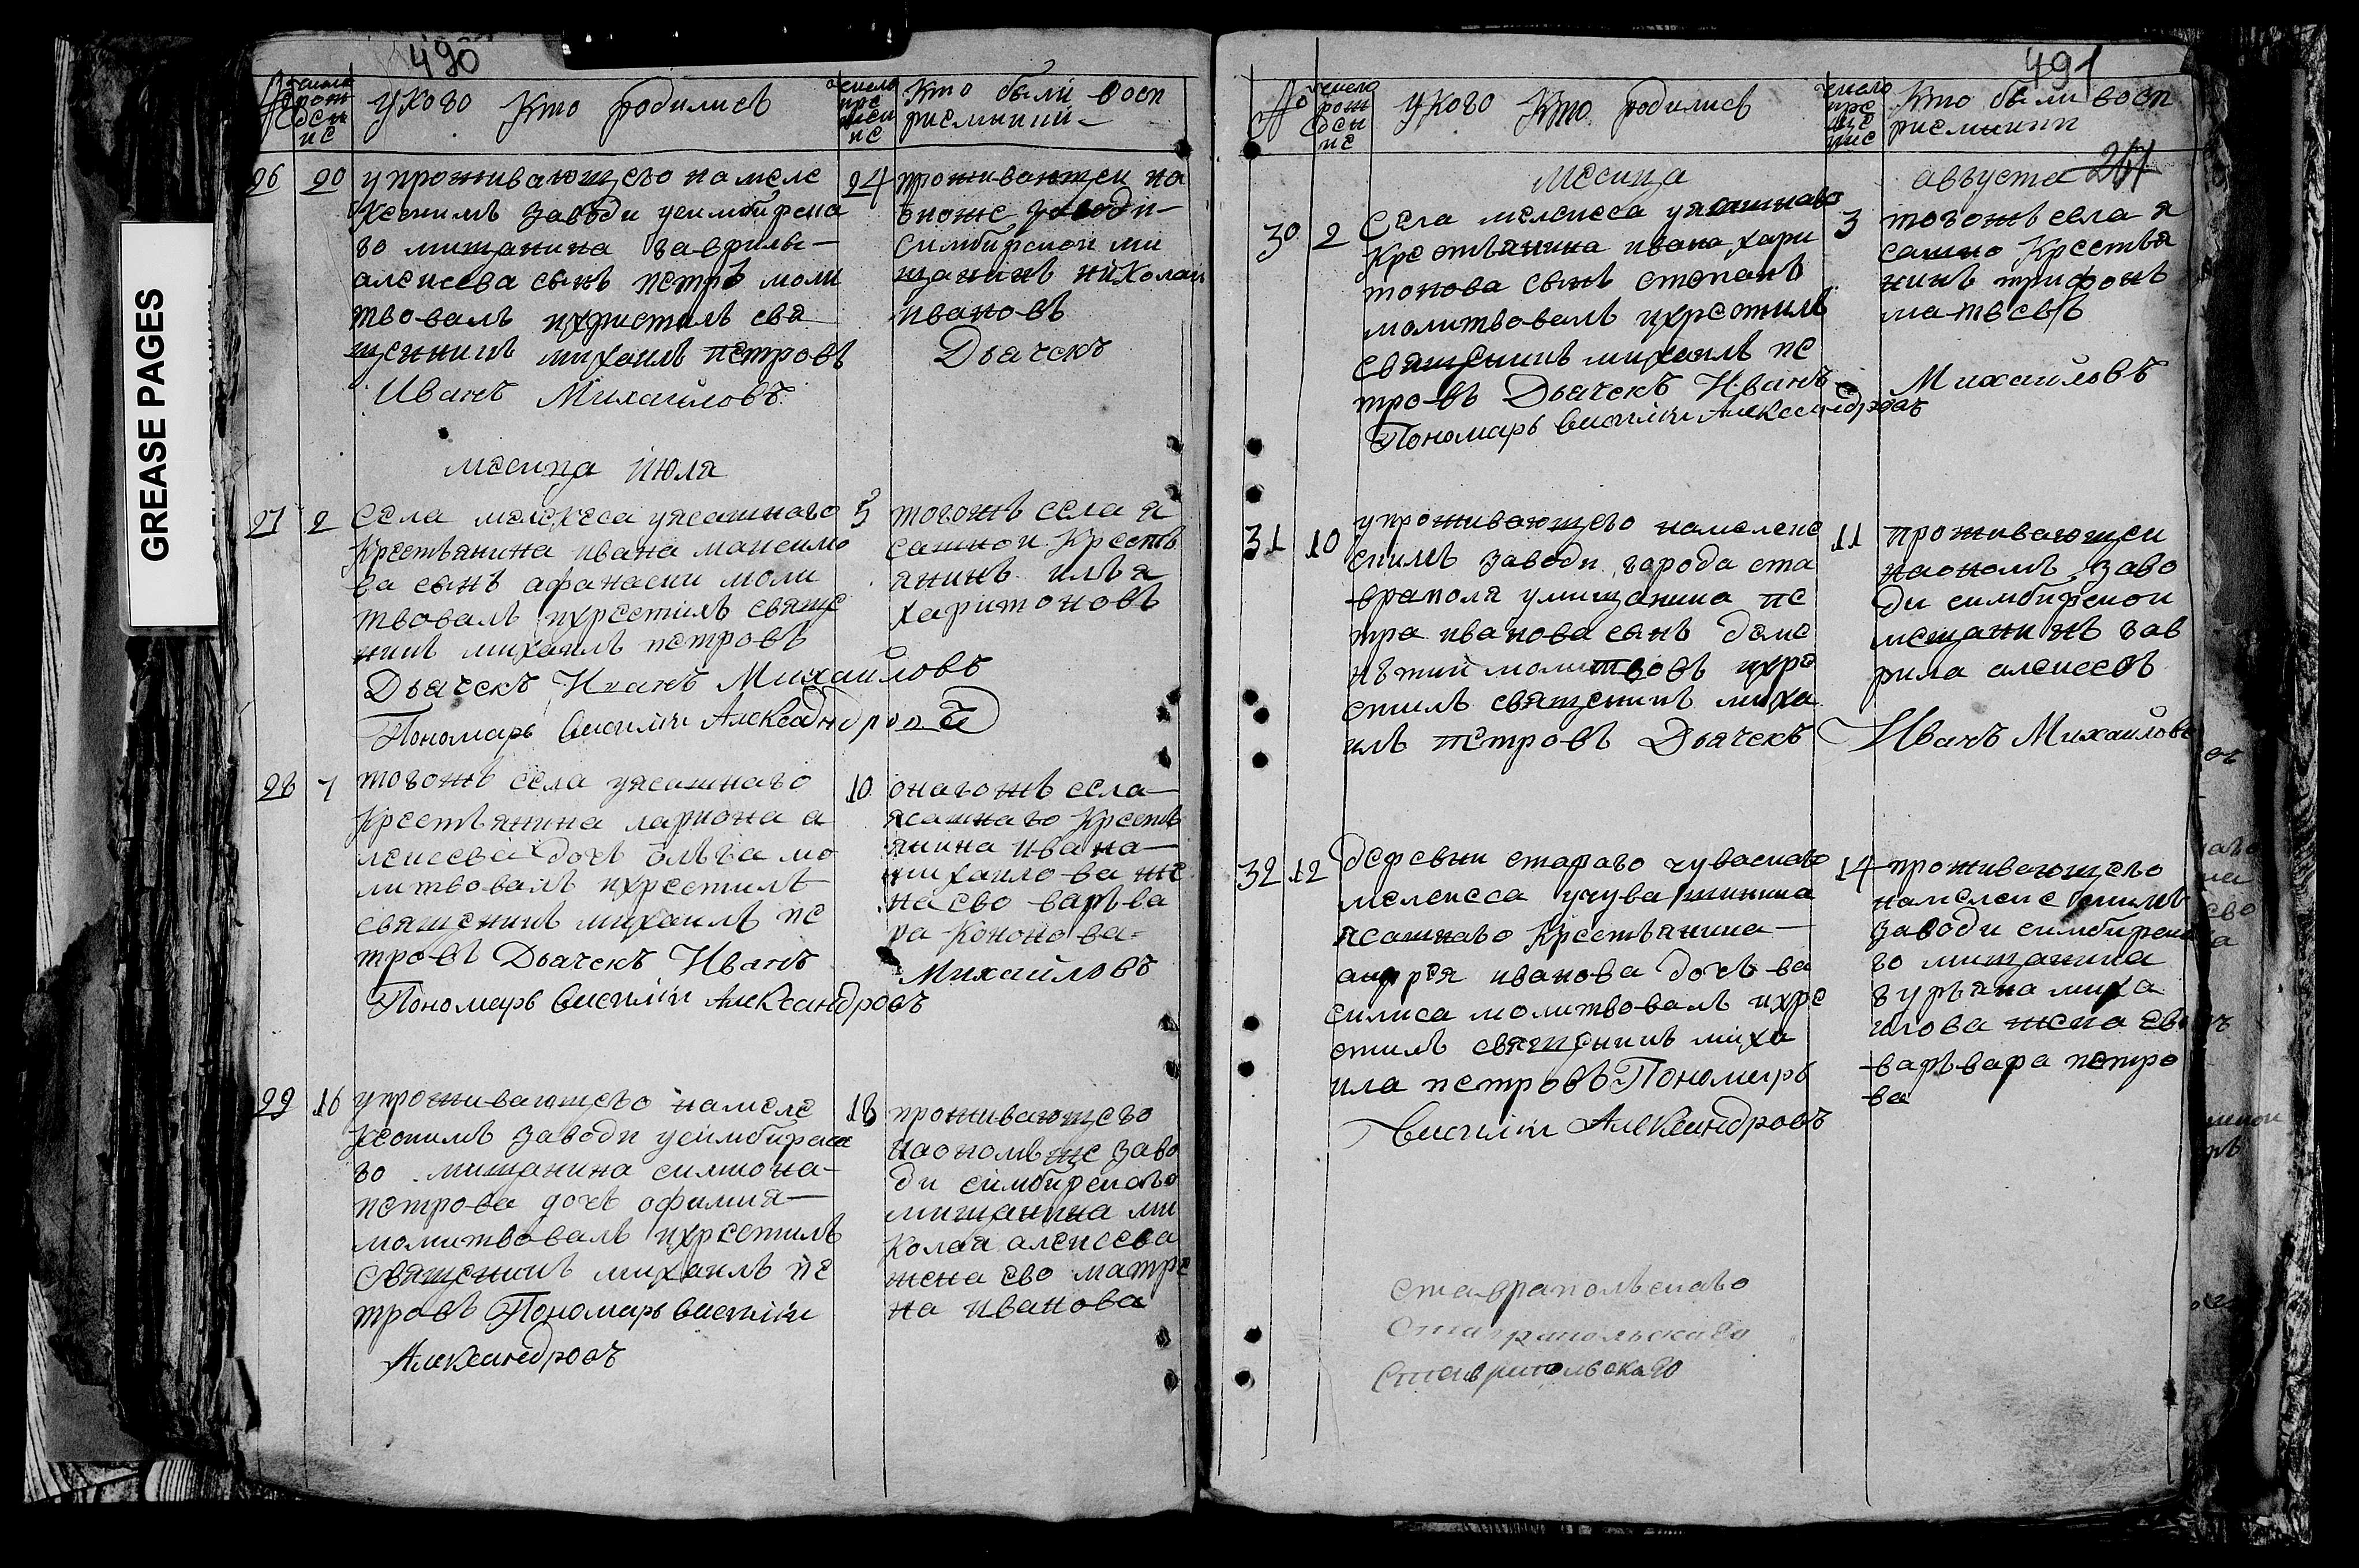 GREASE PAGES
490
число рож дены ис
у кого кто родились
число кре щен ис
кто были восп
риемники
26 20 упроживающего намеле
кескимъ заводи усимбирска
го мищанина гаврилы
алексеева сынъ петръ моли
твовалъ ихристилъ свя
щенникъ михаилъ петровъ
Иванъ Михайловъ
24 проживающеи на
оноже заводи
симбирскои ми
щанинъ николаи
ивановъ
Дьячекъ
месица июля
27 2 села мелекеса уясашнаго
крестьянина ивана максимо
ва сынъ афанасеи моли
твовалъ ихрестилъ свяще
никъ михаилъ петровъ
Дьячекъ Иванъ Михайловъ
Пономарь Василий Александровъ
5 тогожъ села я
сашнои кресть
янинъ илья
харитоновъ
28 7 тогожъ села уясашнаго
крестьянина лариона а
лексеева дочь ольга мо
литвовалъ ихрестилъ
священикъ михаилъ пе
тровъ Дьячекъ Иванъ
Пономарь Василий Александровъ
10 онагожъ села
ясашнаго кресть
янина ивана
михаилова же
на ево варьва
ра кононова
Михайловъ
29 16 упроживающего намеле
кескимъ заводи усимбирска
го мищанина симиона
петрова дочь офимия
молитвовалъ ихрестилъ
священикъ михаилъ пе
тровъ Пономарь Василий
Александровъ
18 проживающего
наономъ же заво
ди симбирскаго
мищанина ни
колая алексеева
жена ево матре
на иванова
491
число рож дены ис
у кого кто родились
число кре ще ние
кто были восп
риемники
месица августа
261
30 2 Села мелекеса уясашнаго
крестьянина ивана хари
тонова сынъ степанъ
молитвовалъ ихрестилъ
священикъ михаилъ пе
тровъ Дьячекъ Иванъ
Пономарь Василий Александровъ
3 тогожъ села я
сашно крестья
нинъ трифонъ
матвеевъ
Михайловъ
31 10 упроживающего намелекес
скимъ заводи города ста
враполя умищанина пе
тра иванова сынъ доме
нътий молитвовъ ихре
стилъ священикъ миха
илъ петровъ Дьячекъ
11 проживающеи
наономъ заво
ди симбирскои
мещанинъ гав
рила алексеевъ
Иванъ Михайловъ
32 12 деревни стараго чуваскаго
мелекеса учувашинина
ясашнаго крестьянина
андрея иванова дочь ва
силиса молитвовалъ ихре
стилъ священикъ миха
ила петровъ Пономарь
Василий Александровъ
14 проживающего
намелекескимъ
заводи симбирска
го мищанина
гурьяна миха
илова жена ево
варьвара петро
ва
ставрапольскаго
Ставрапольскаго
Ставрапольскаго